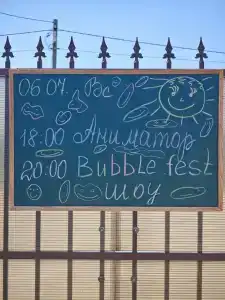 06.07. Вс
18:00 Аниматор
20:00 Bubble fest
шоу